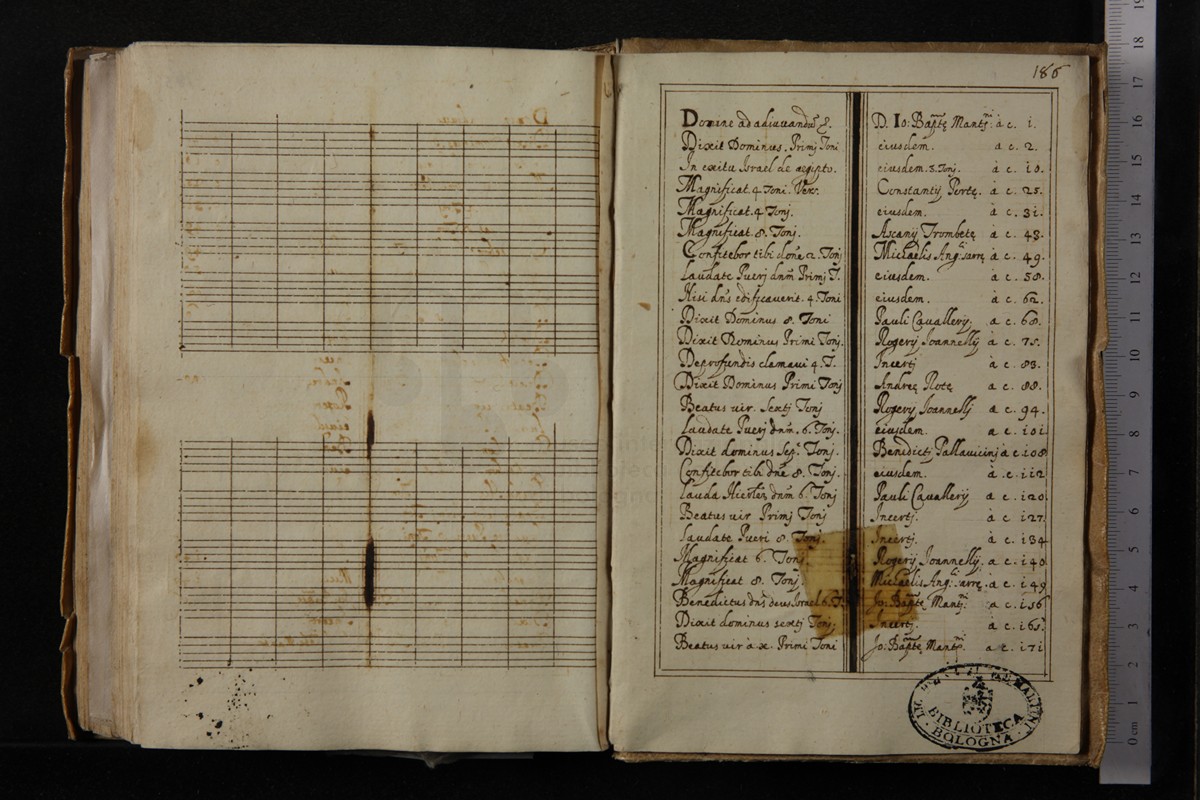 186
Domine ad adiuvandũ 8. D. Io: Bap̃tę Mant: à c. 1.
Dixit Dominus. Primj Toni eiusdem. a c. 2.
In exitu Israel de ægipto. eiusdem. 8. Tonj. à c. 10.
Magnificat 4 Toni. Constantij Portę. à c. 25.
Magnificat. 4 Tonj. eiusdem. à c. 31.
Magnificat. 8. Tonj. Ascanij Trombetę à c. 43.
Confitebor tibi dom̃e 2. Tonj Michaelis Ang. à c. 49.
Laudate Puerj dnm̃ Primj T. eiusdem. à c. 58.
Nisi dns̃ edifficaverit. 4. Toni eiusdem. à c. 62.
Dixit Dominus 8. Toni Pauli Cavallerij. à c. 68.
Dixit Dominus Primi Tonj Rogerij Joannellij à c. 75.
De profundis clamavi 4. T. Incertj à c. 83.
Dixit Dominus Primi Tonj Andreę Rotę à c. 88.
Beatus vir. Sextj Tonj Rogerij Joannellij a c. 94.
Laudate Puerj dnm̃. 6. Tonj. eiusdem. a c. 101
Dixit dominus Sep. Tonj. Benedictj Pallavicinj à c. 108
Confitebor tibi dnẽ 8. Tonj. eiusdem. à c. 112
Lauda Hierlẽ dnm̃ 6. Tonj Pauli Cavallerij a c. 120
Beatus vir Primj Tonj Incertj. a c. 127.
Laudate Pueri 8. Tonj. Incertj. à c. 134
Magnificat 6. Tonj Rogerij Joannellij. à c. 140
Magnificat 8. Tonj Michaelis Ang. à c. 149
Benedictus dns̃ deus Israel 6. T. Jo: Bap̃tę Mant. a c. 156
Dixit dominus sextj Tonj. Incertj. à c. 165
Beatus vir à x. Primi Toni Jo: Bap̃tę Mant. a c. 171
BIBLIOTECA
BOLOGNA